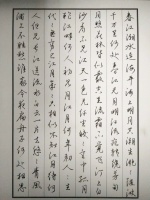 春江潮水连海平海上明月共潮生滟滟随波
千万里何处春江无月明江流宛转绕芳甸
月照花林皆似霰空里流霜不觉飞汀上白
沙看不见江天一色无纤尘皎皎空中孤月
轮江畔何人初见月江月何年初照人人生
代代无穷已江月年年只相似不知江月待何
人但见长江送流水白云一片去悠悠青枫
浦上不胜愁谁家今夜扁舟子何处相思